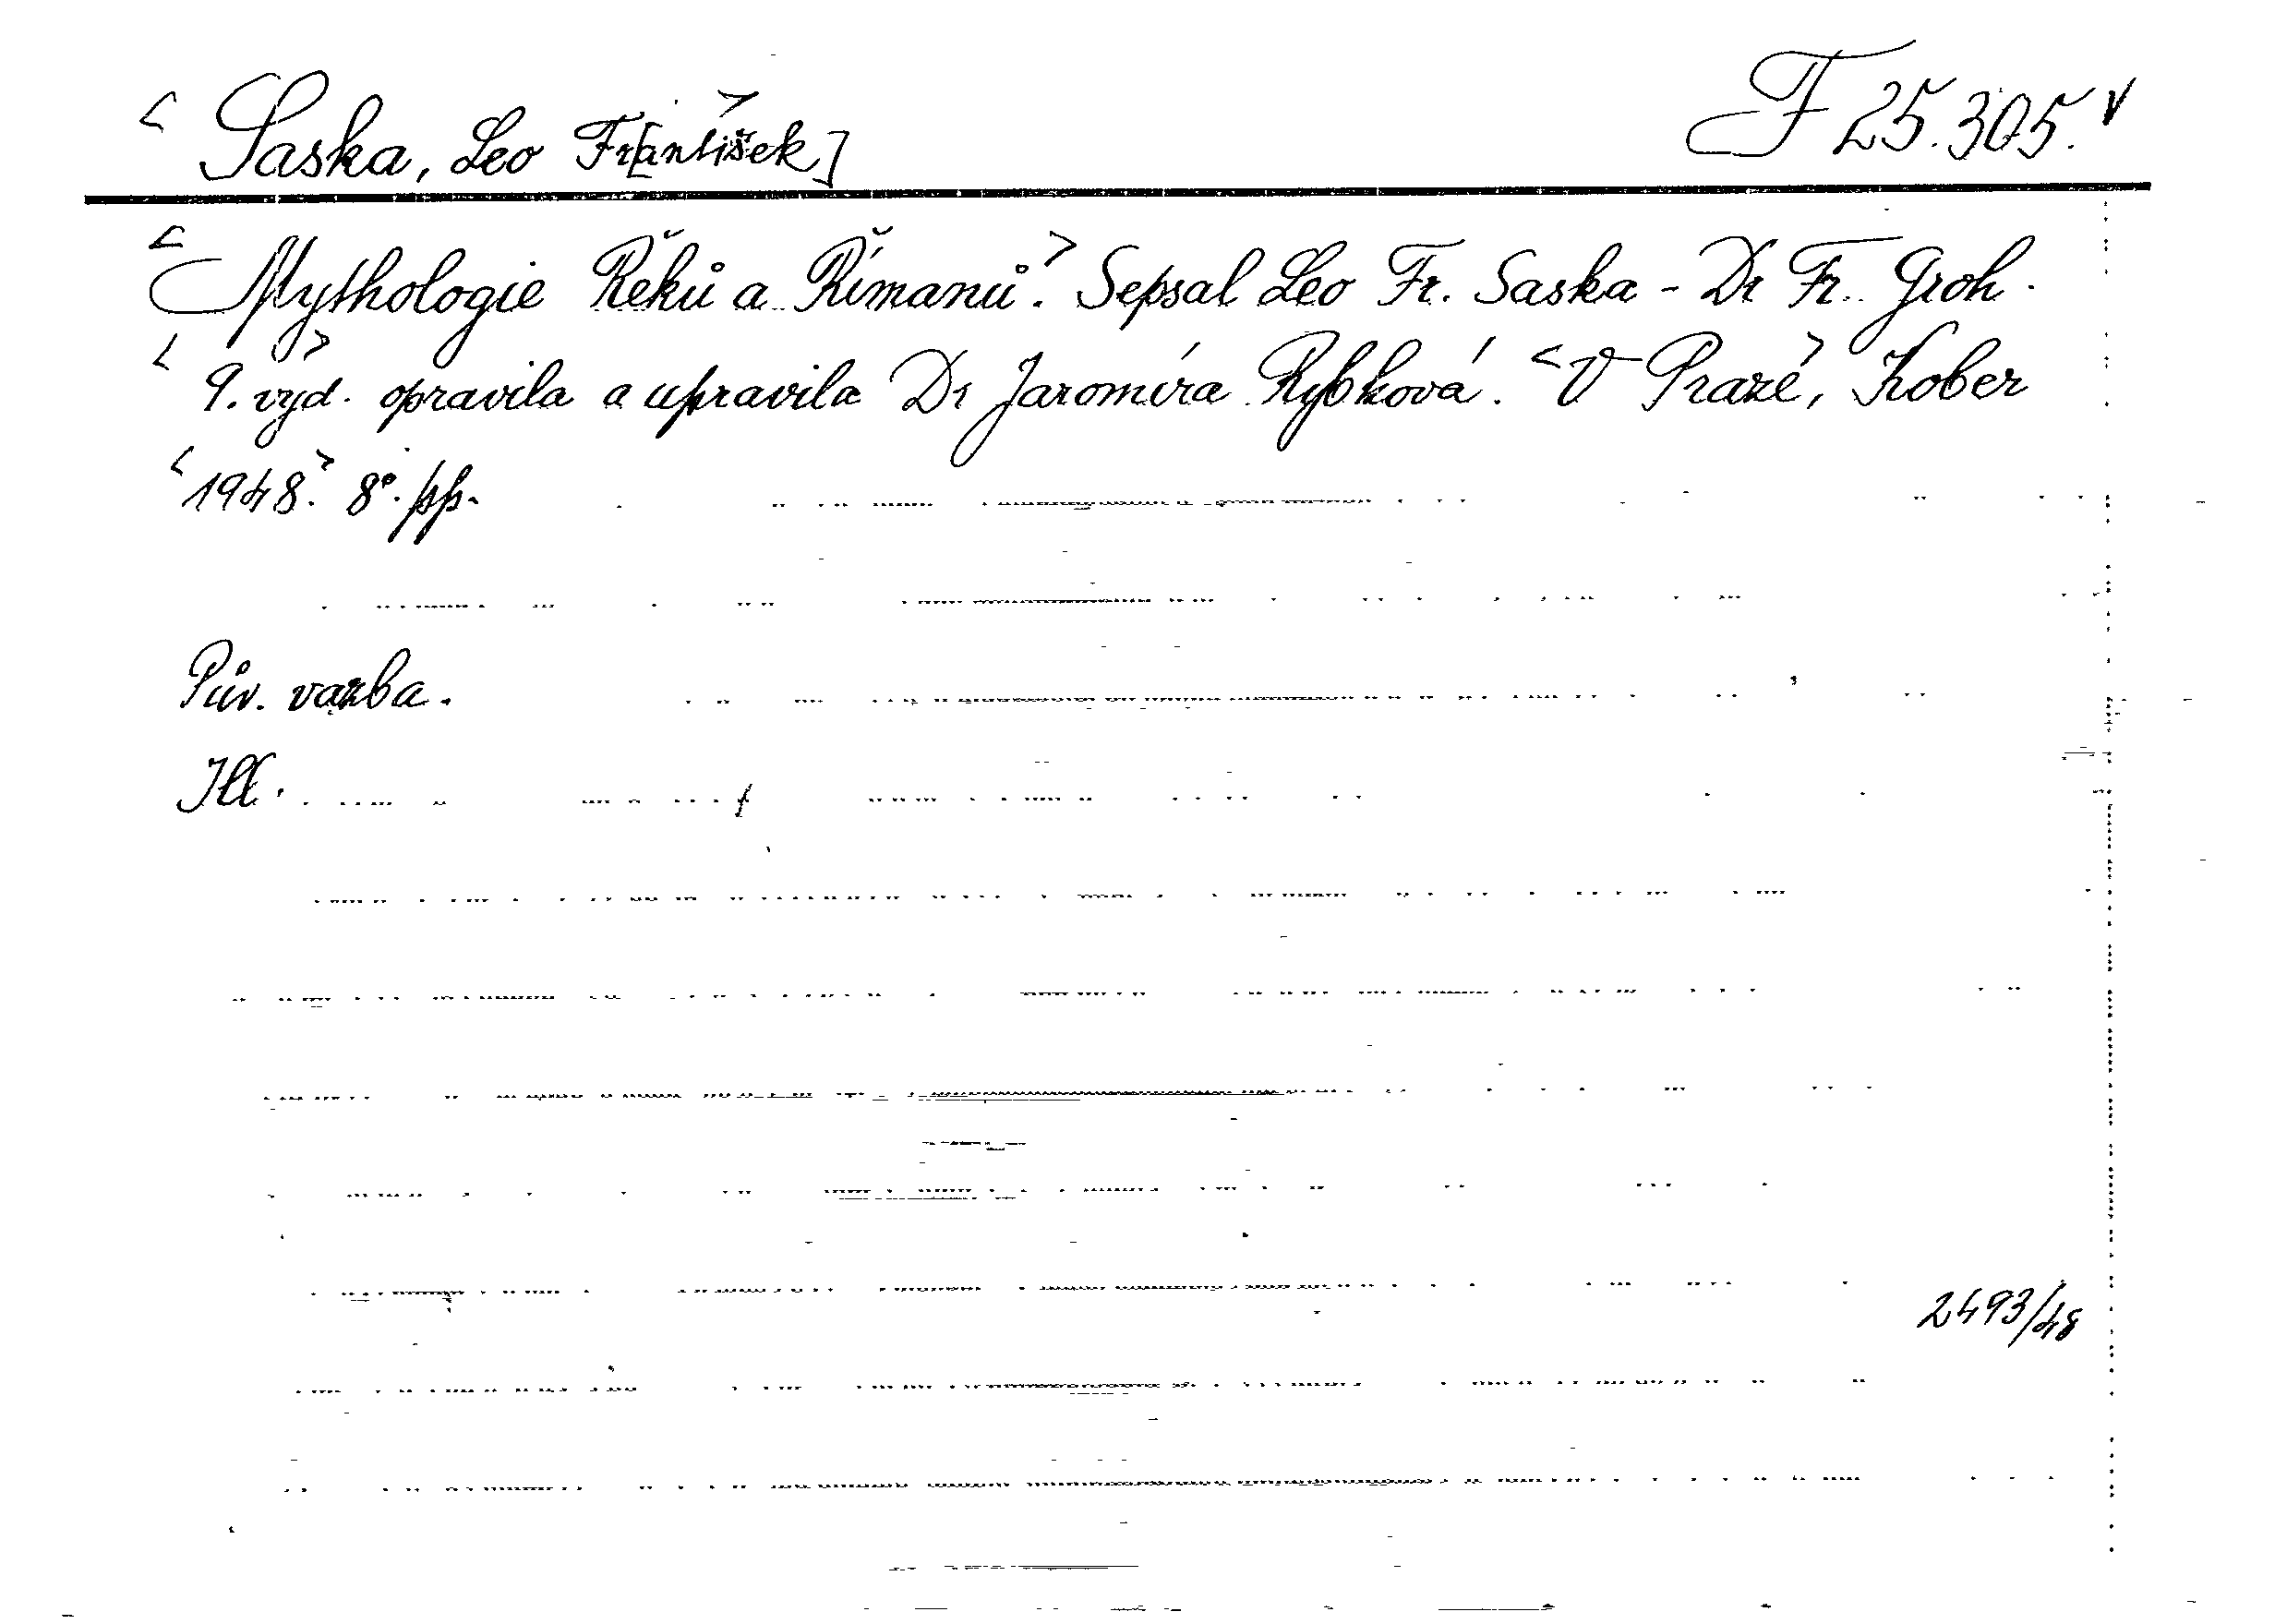 < Saska, Leo Fr[antišek] > F 25.305. v
< Mythologie Řeků a Římanů. > Sepsal Leo Fr. Saska - Dr Fr. Groh.
< 9. vyd. > opravila a upravila Dr Jaromíra Rybková. < V Praze, > Kober
< 1948. > 8°. pp.
Pův. vazba.
Ill.
2493/48